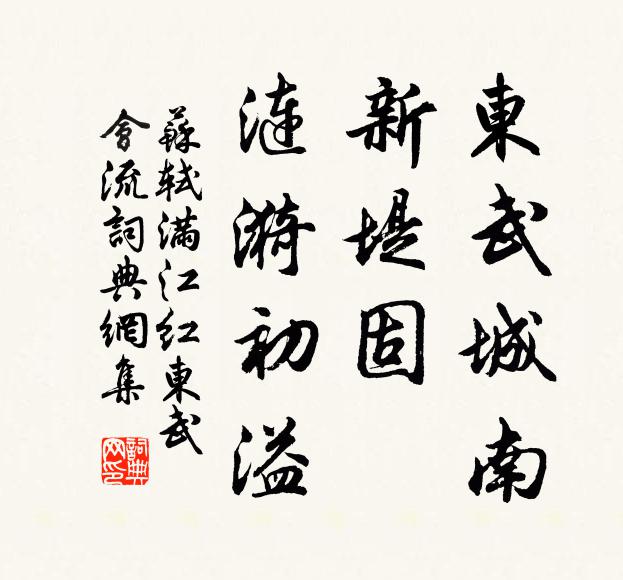 東武城南
新堤固
漣漪初溢
蘇軾滿江紅東武
會流詞典網集
詞典
网印